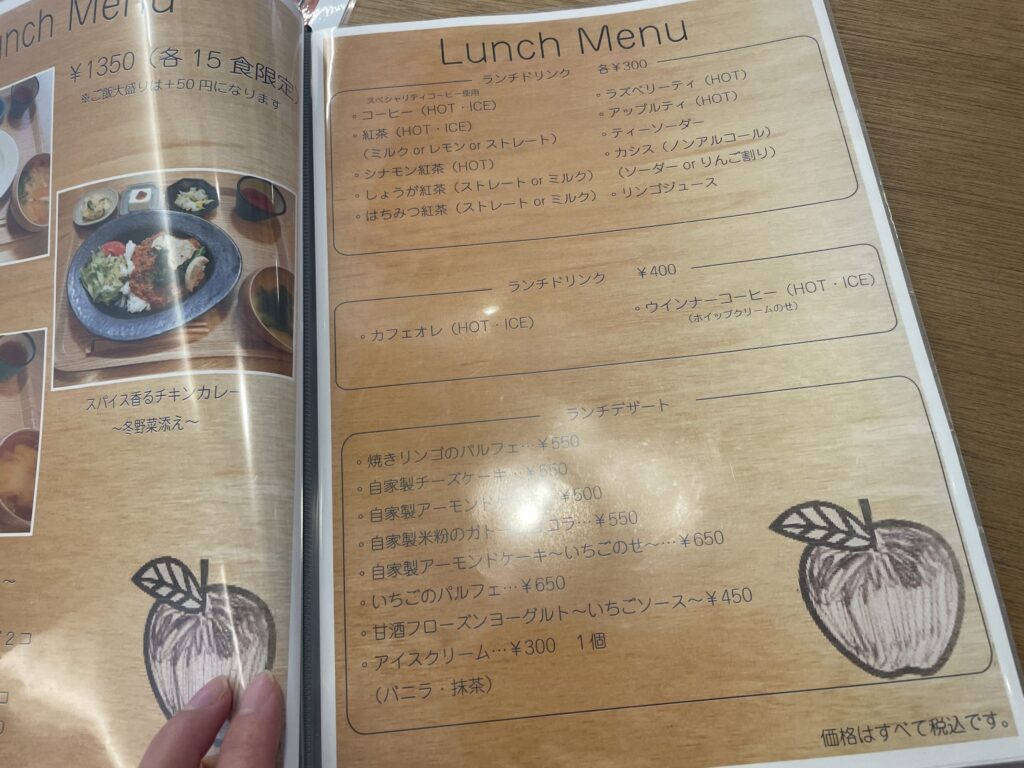 unch Menu
¥1350（各15食限定）
※ご飯大盛りは+50円になります
スパイス香るチキンカレー
～冬野菜添え～
～
2コ
コ
Lunch Menu
ランチドリンク 各¥300
スペシャリティコーヒー使用
。コーヒー（HOT・ICE）
。紅茶（HOT・ICE）
（ミルク or レモン or ストレート）
。シナモン紅茶（HOT）
。しょうが紅茶（ストレート or ミルク）
。はちみつ紅茶（ストレート or ミルク）
。ラズベリーティ（HOT）
。アップルティ（HOT）
。ティーソーダー
。カシス（ノンアルコール）
（ソーダー or りんご割り）
。リンゴジュース
ランチドリンク ¥400
。カフェオレ（HOT・ICE）
。ウインナーコーヒー（HOT・ICE）
（ホイップクリームのせ）
ランチデザート
。焼きリンゴのパルフェ…¥550
。自家製チーズケーキ…¥550
。自家製アーモンド ¥500
。自家製米粉のガトーショコラ…¥550
。自家製アーモンドケーキ～いちごのせ～…¥650
。いちごのパルフェ…¥650
。甘酒フローズンヨーグルト～いちごソース～¥450
。アイスクリーム…¥300 1個
（バニラ・抹茶）
価格はすべて税込です。